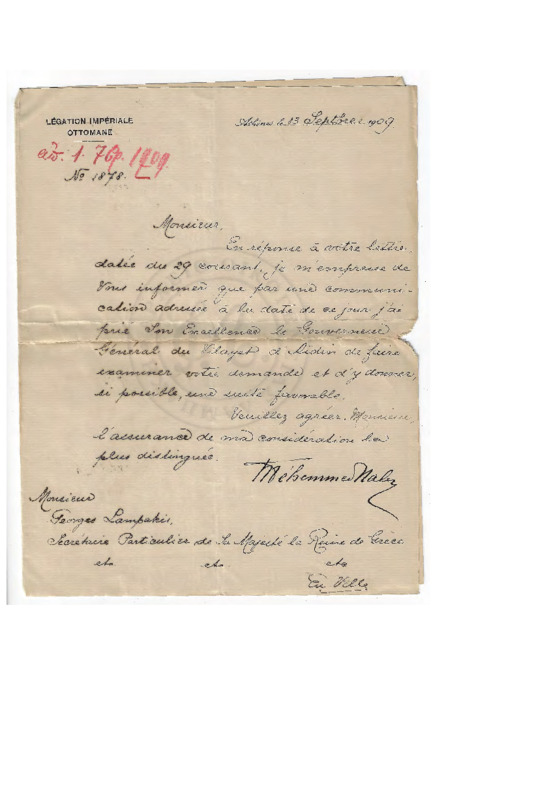 LÉGATION IMPÉRIALE
OTTOMANE
No 1878.
Athènes le 13 Septbre 1909
Monsieur,
En réponse à votre lettre
datée du 29 courant, je m'empresse de
Vous informer que par une communi-
cation adressée à la date de ce jour j'ai
prié Son Excellence le Gouverneur
Général du Vilayet d'Aïdin de faire
examiner votre demande et d'y donner,
si possible, une suite favorable.
Veuillez agréer, Monsieur,
l'assurance de ma considération la
plus distinguée.
Monsieur
Georges Lampakis,
Secrétaire Particulier de Sa Majesté la Reine de Grèce
etc etc etc
En Ville